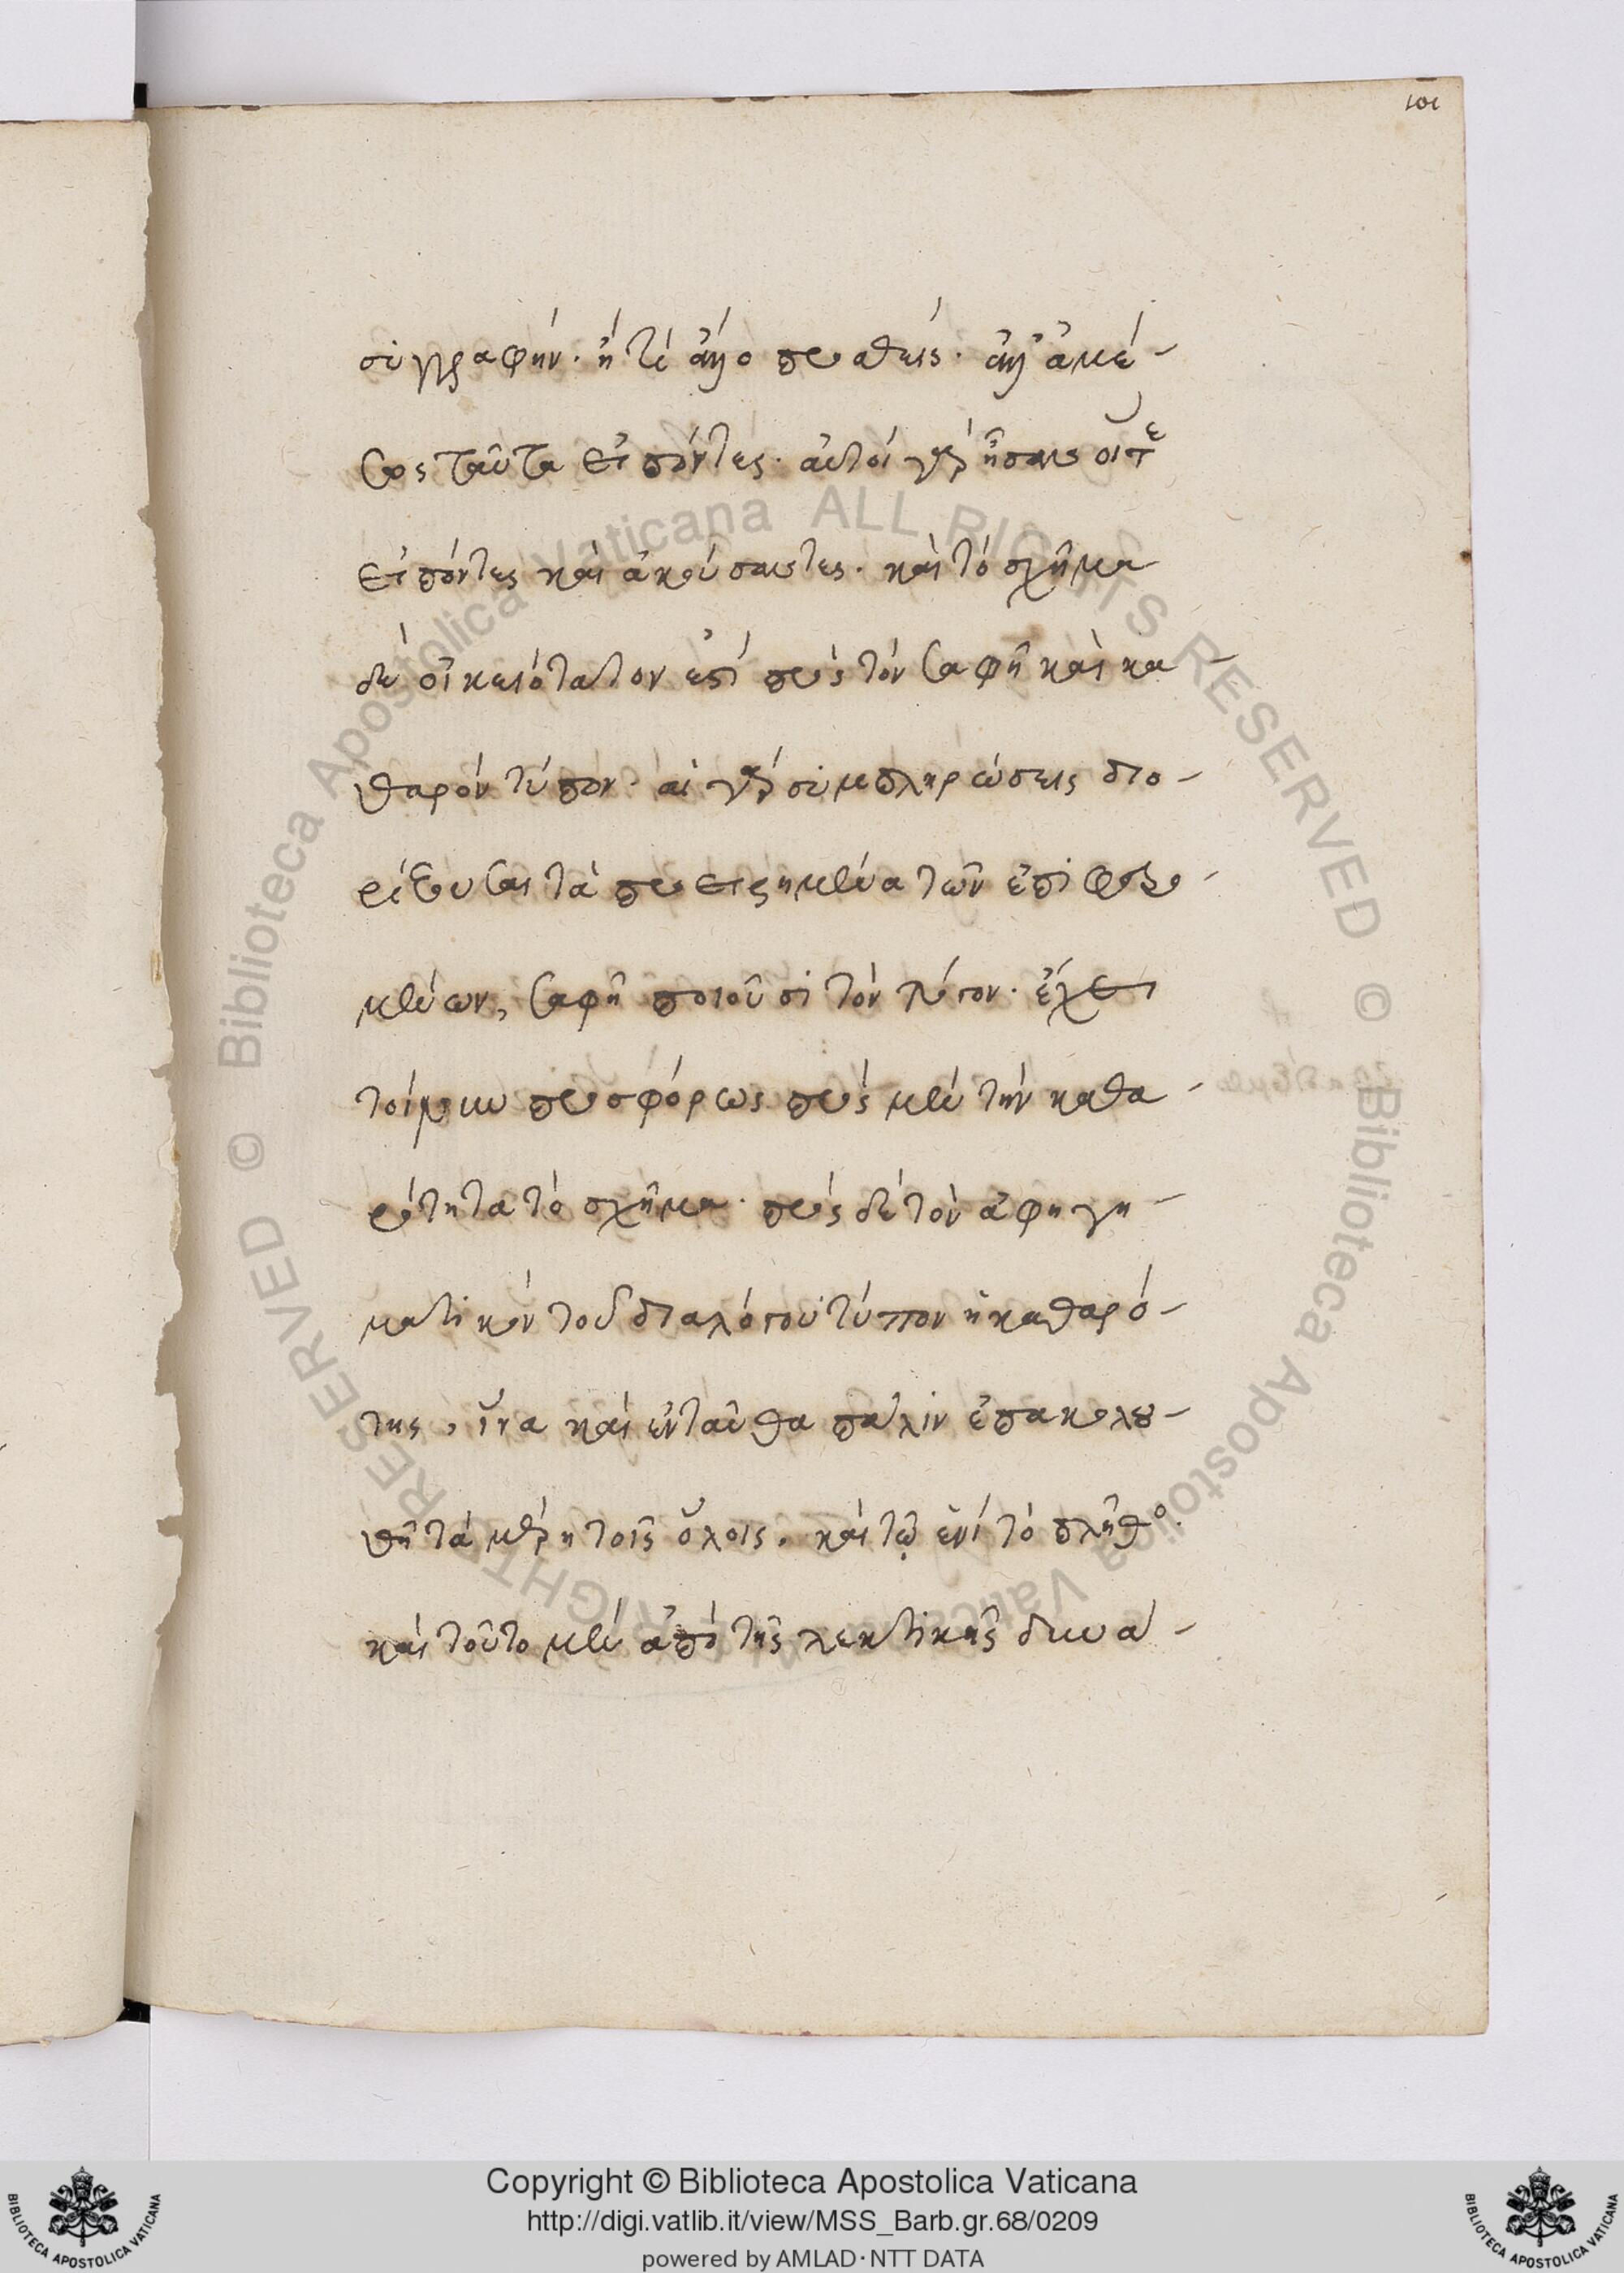 101
συγγραφήν· ἤ τί ἄλλο προσθείς· ἀλλ' ἀμέ-
σως ταῦτα εἰπόντες· αὐτοὶ γὰρ ἦσαν οἵ τε
εἰπόντες καὶ ἀκούσαντες· καὶ τὸ σχῆμα
δὲ οἰκειότατον ἐστὶ πρὸς τὸν σαφῆ καὶ κα-
θαρὸν τύπον· αἱ γὰρ συμπληρώσεις διο-
ρίζουσαι τὰ προειρημένα τῶν ἐπιφερο-
μένων, σαφῆ ποιοῦσι τὸν λόγον· ἔχει
τοίνυν προσφόρως πρὸς μὲν τὴν καθα-
ρότητα τὸ σχῆμα· πρὸς δὲ τὸν ἀφηγη-
ματικὸν τοῦ διαλόγου τύπον ἡ καθαρό-
της, ἵνα καὶ ἐνταῦθα πάλιν ἐπακολου-
θῇ τὰ μέρη τοῖς ὅλοις, καὶ τῷ ἑνὶ τὸ πλῆθος·
καὶ τοῦτο μὲν ἀπὸ τῆς λεκτικῆς δυνά-
© Biblioteca Apostolica Vaticana ALL RIGHTS RESERVED
© Biblioteca Apostolica Vaticana ALL RIGHTS RESERVED
BIBLIOTECA APOSTOLICA VATICANA
Copyright © Biblioteca Apostolica Vaticana
http://digi.vatlib.it/view/MSS_Barb.gr.68/0209
powered by AMLAD·NTT DATA
BIBLIOTECA APOSTOLICA VATICANA